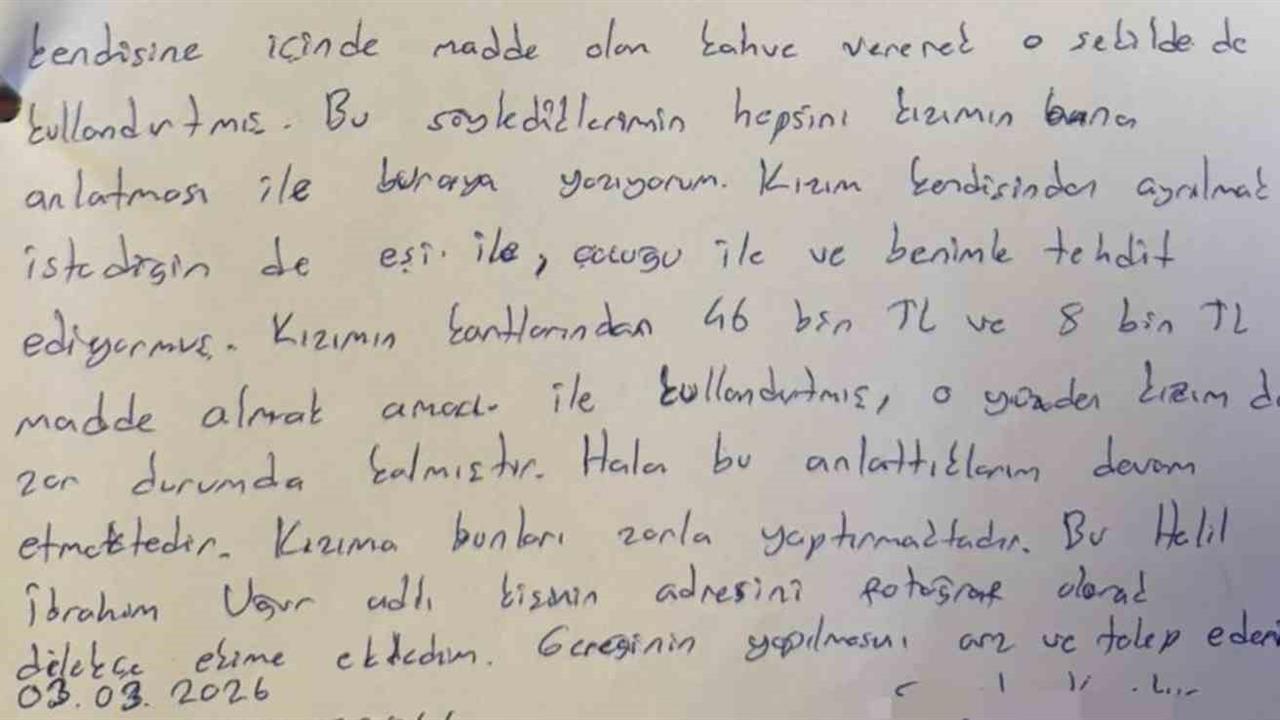 kendisine içinde madde olan kahve vererek o sekilde de
kullandırtmış. Bu söylediklerimin hepsini kızımın bana
anlatması ile buraya yazıyorum. Kızım kendisinden ayrılmak
istediğin de eşi ile, çocuğu ile ve benimle tehdit
ediyormuş. Kızımın kartlarından 46 bin TL ve 8 bin TL
madde almak amacı ile kullandırtmış, o yüzden kızım da
zor durumda kalmıştır. Hala bu anlattıklarım devam
etmektedir. Kızıma bunları zorla yaptırmaktadır. Bu Halil
İbrahim Uğur adlı kişinin adresini fotoğraf olarak
dilekçe ekime ekledim. Gereğinin yapılmasını arz ve talep ederi
03.03.2026